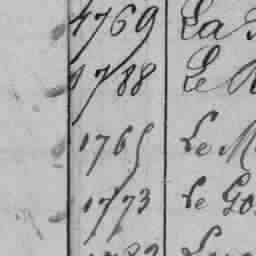 1769 La
1788 Le
1765 Le M
1773 Le Go